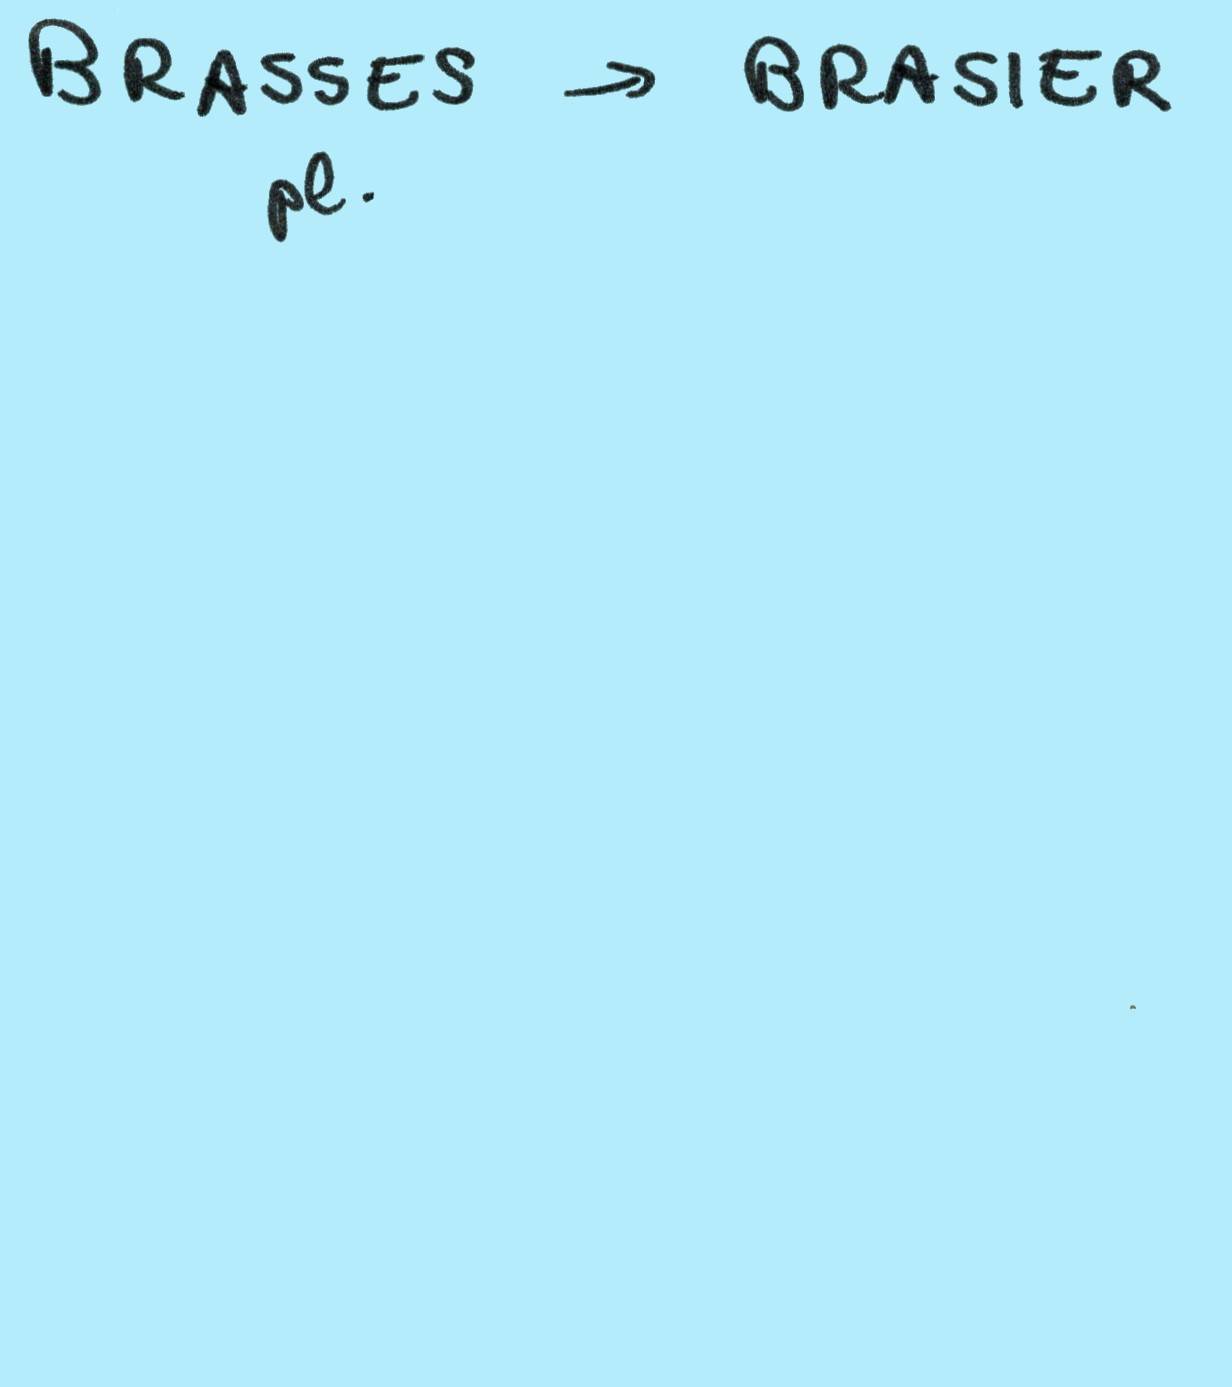 BRASSES → BRASIER
pl.